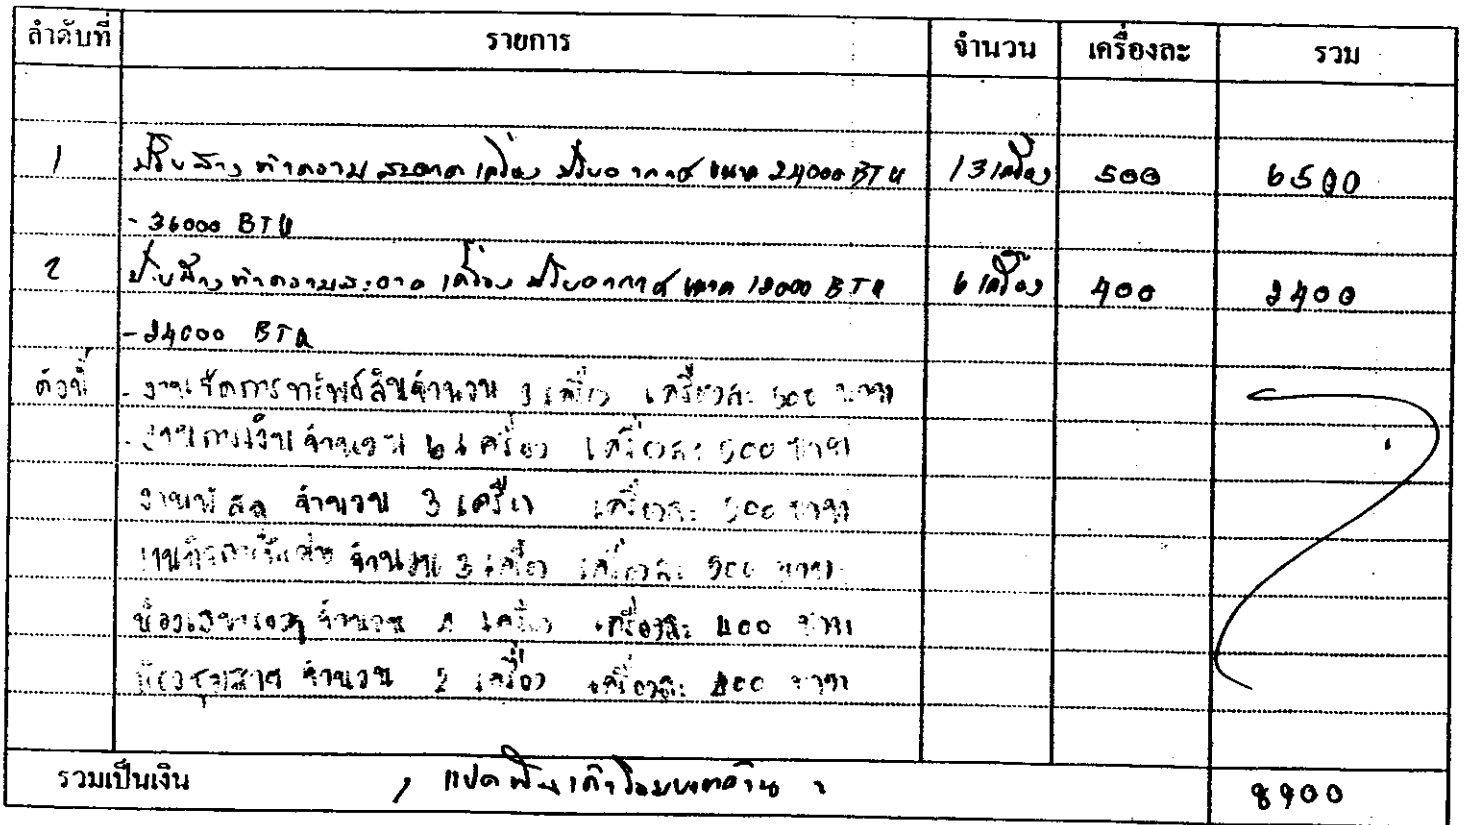 ลำดับที่ รายการ จำนวน เครื่องละ รวม
1 ล้าง ทำความ สะอาด เครื่อง ปรับอากาศ ขนาด 24000 BTU 13 เครื่อง 500 6500
- 36000 BTU
2 ล้าง ทำความสะอาด เครื่อง ปรับอากาศ ขนาด 18000 BTU 6 เครื่อง 400 2400
- 24000 BTU
ดังนี้ - งานจัดการทรัพย์สินจำนวน 1 เครื่อง เครื่องละ 500 บาท
- งานการเงิน จำนวน 6 เครื่อง เครื่องละ 500 บาท
งานพัสดุ จำนวน 3 เครื่อง เครื่องละ 500 บาท
จำนวน 3 เครื่อง เครื่องละ 500 บาท
จำนวน 4 เครื่อง เครื่องละ 400 บาท
จำนวน 2 เครื่อง เครื่องละ 400 บาท
รวมเป็นเงิน แปดพันเก้าร้อยบาทถ้วน 8900